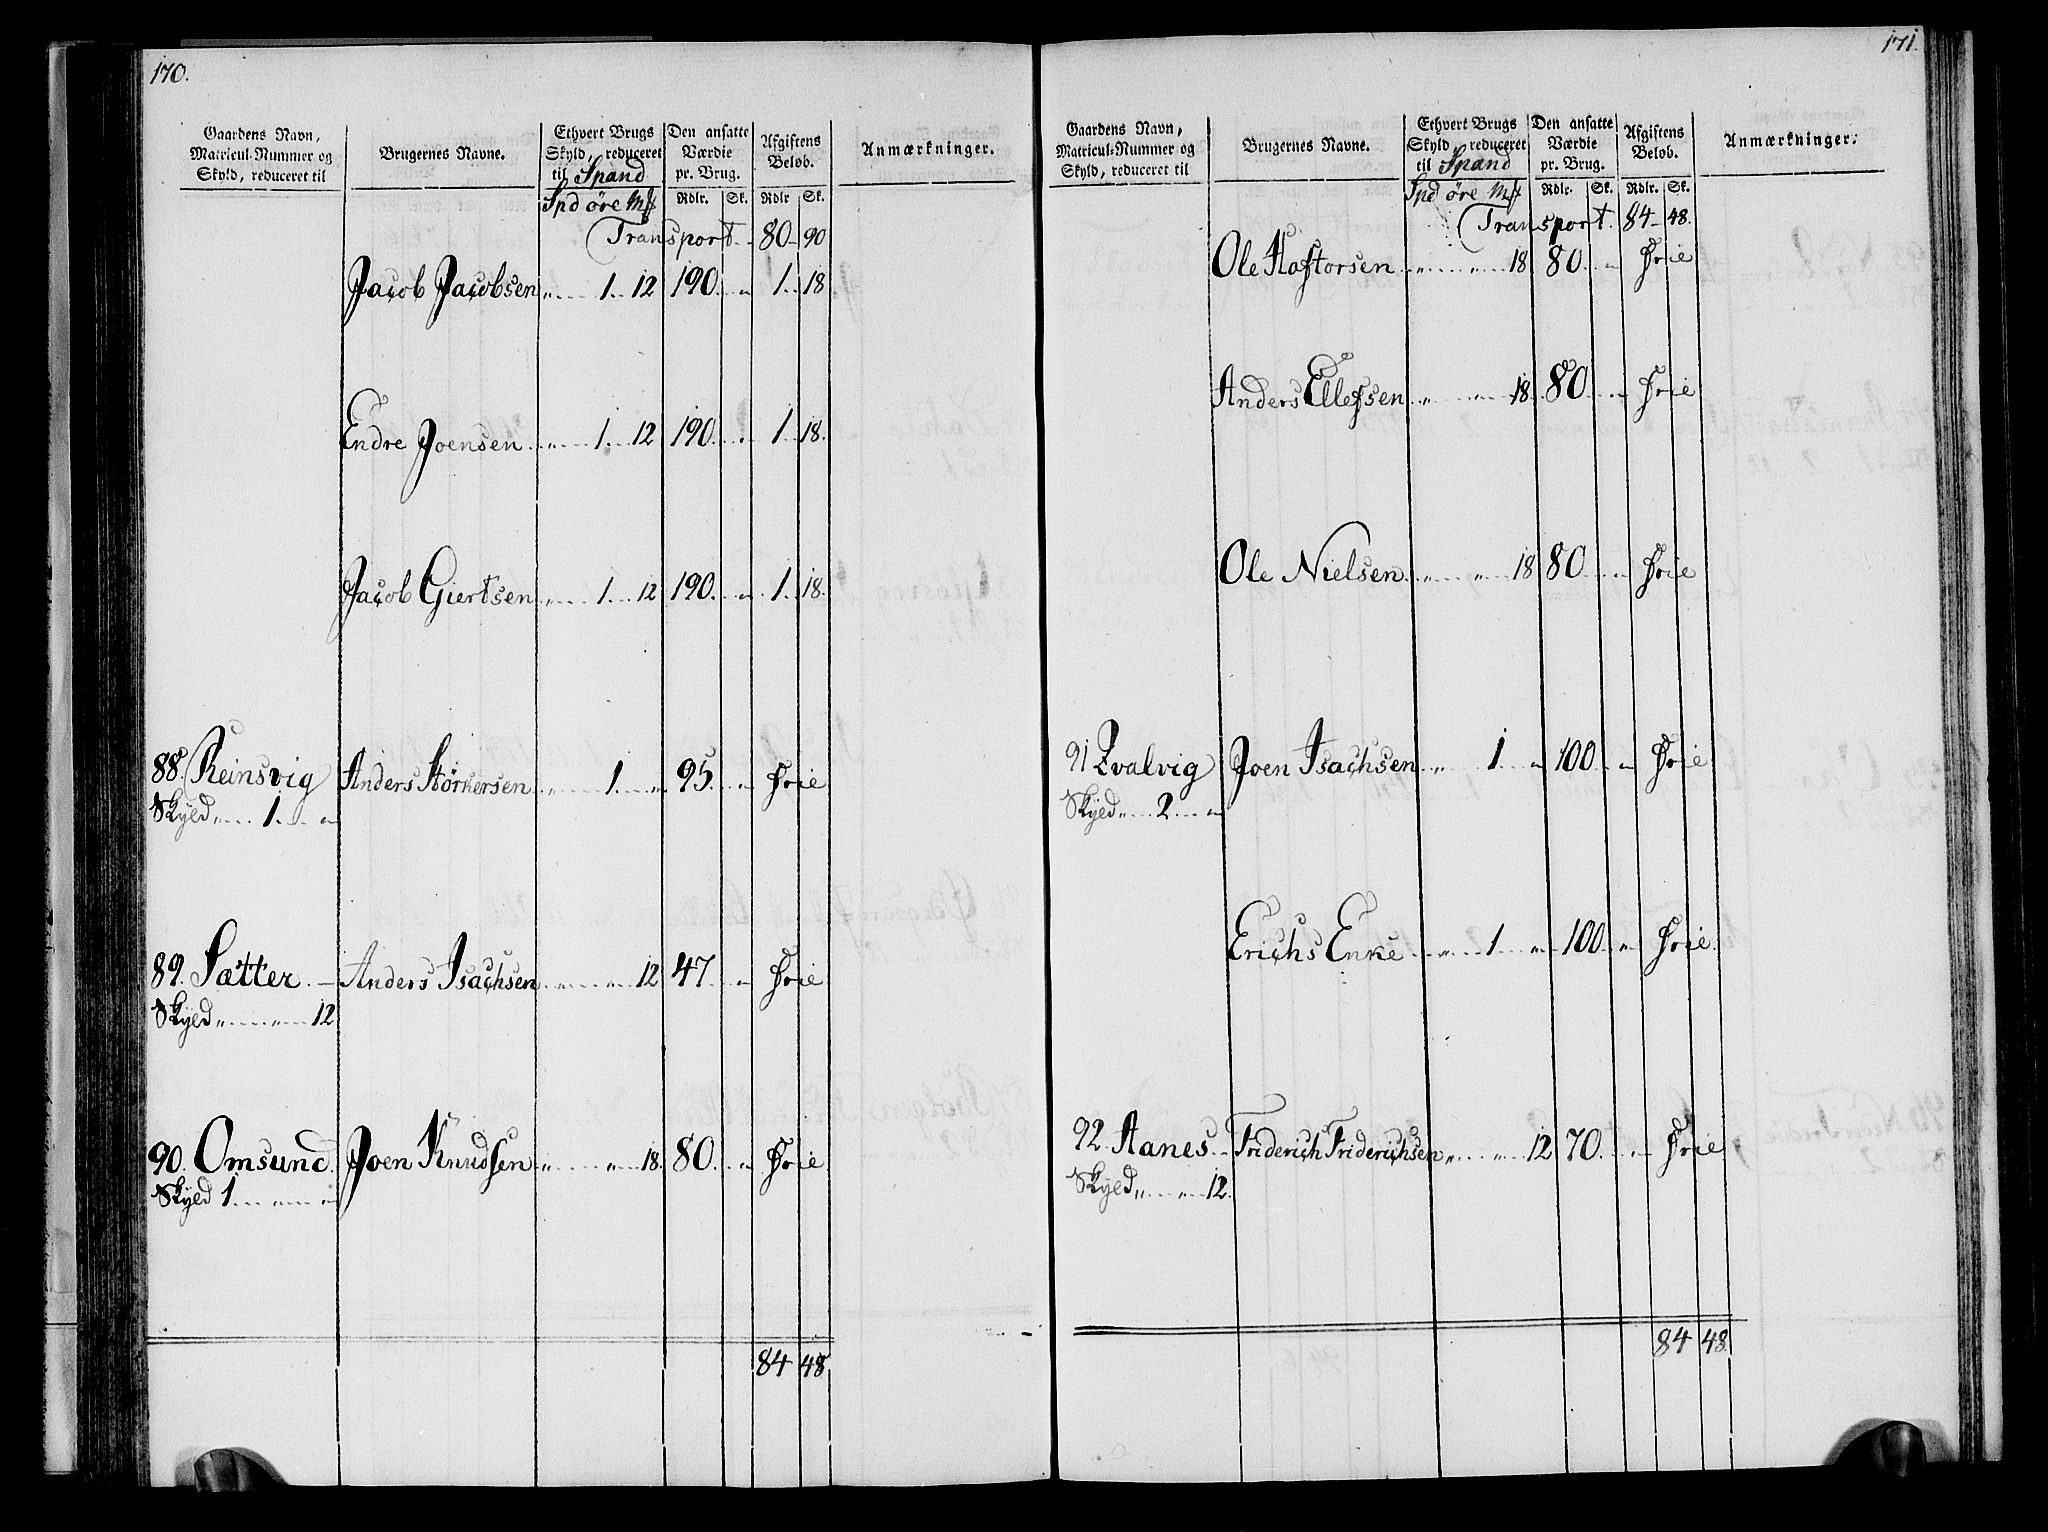 170.
Gaardens Navn, Matricul-Nummer og Skyld, reduceret til
Brugernes Navne.
Ethvert Brugs Skyld, reduceret til Spand
Den ansatte Værdie pr. Brug.
Afgiftens Beløb.
Anmærkninger.
Spd øre Mk Rdlr. Sk. Rdlr Sk.
Transport.. 80 - 90
Jacob Jacobsen „ .... 1 .. 12 190. .. „ 1 .. 18
Endre Joensen .. „ .... 1 ... 12 190. ... 1 .. 18.
Jacob Giertsen „ .... 1 .... 12 190. .. „ 1 .. 18.
88. Reinsvig Anders Størkersen .. „ .... 1 .... „ 95. .. „ Frie
Skyld „ .... 1 .... „
89. Sætter. — Anders Isachsen „ .... „ ... 12 47 .. „ Frie
Skyld „ .... „ .... 12
90. Omsund. Joen Knudsen. „ .... „ ... 18. 80. .. „ Frie
Skyld 1 .... „ .... „
84 48
171.
Gaardens Navn, Matricul-Nummer og Skyld, reduceret til
Brugernes Navne.
Ethvert Brugs Skyld, reduceret til Spand
Den ansatte Værdie pr. Brug.
Afgiftens Beløb.
Anmærkninger.
Spd øre Mk Rdlr. Sk. Rdlr. Sk.
Transport. 84 - 48.
Ole Hastorsen .. „ .... „ ... 18 80 .. „ Frie
Anders Ellefsen .. „ .... „ ... 18. 80 .. „ Frie
Ole Nielsen .. „ .... „ ... 18 80 .. „ Frie
91 Qvalvig Joen Isachsen .. „ ... 1 ... „ 100 .. „ Frie
Skyld „ .... 2 .... „
Erichs Enke .. „ ... 1 ... „ 100. „ Frie.
92. Aanes. — Friderich Friderichsen „ .... „ ... 12 70. .. „ Frie
Skyld „ .... „ .... 12.
84 48.